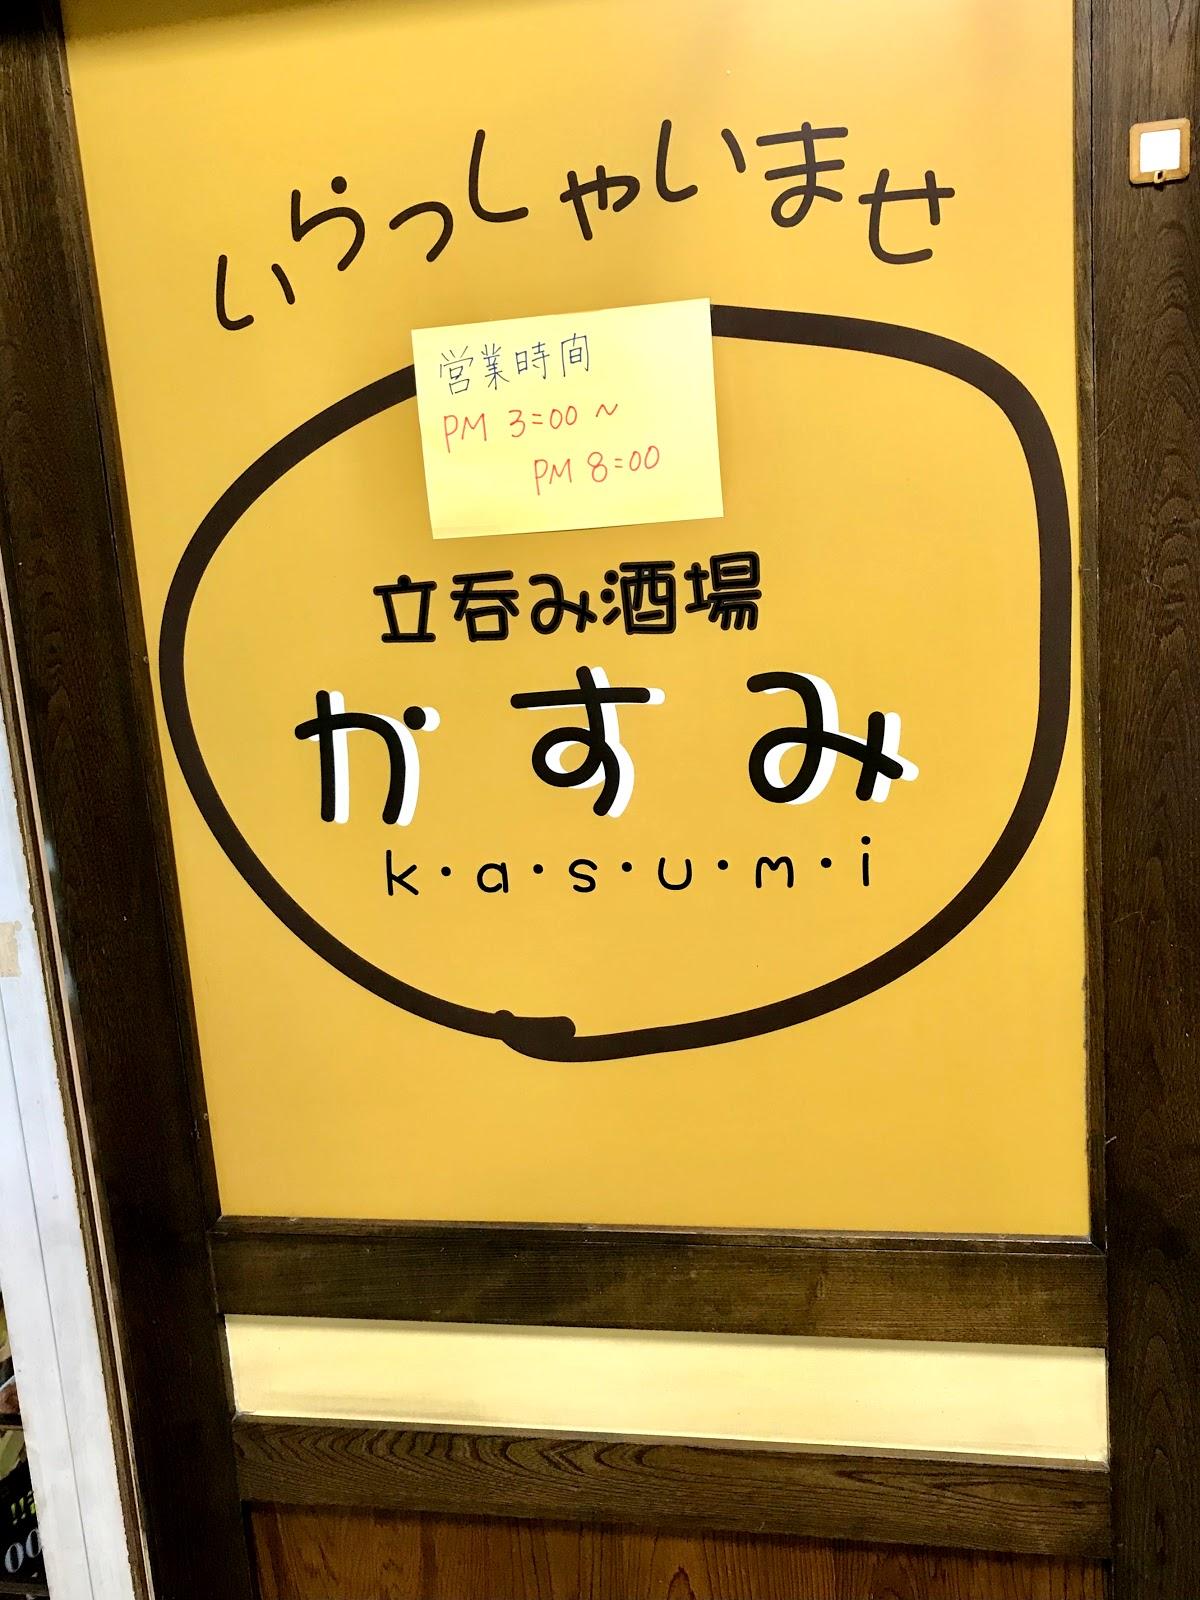 いらっしゃいませ
営業時間
PM 3:00 ~
PM 8:00
立呑み酒場
かすみ
k・a・s・u・m・i